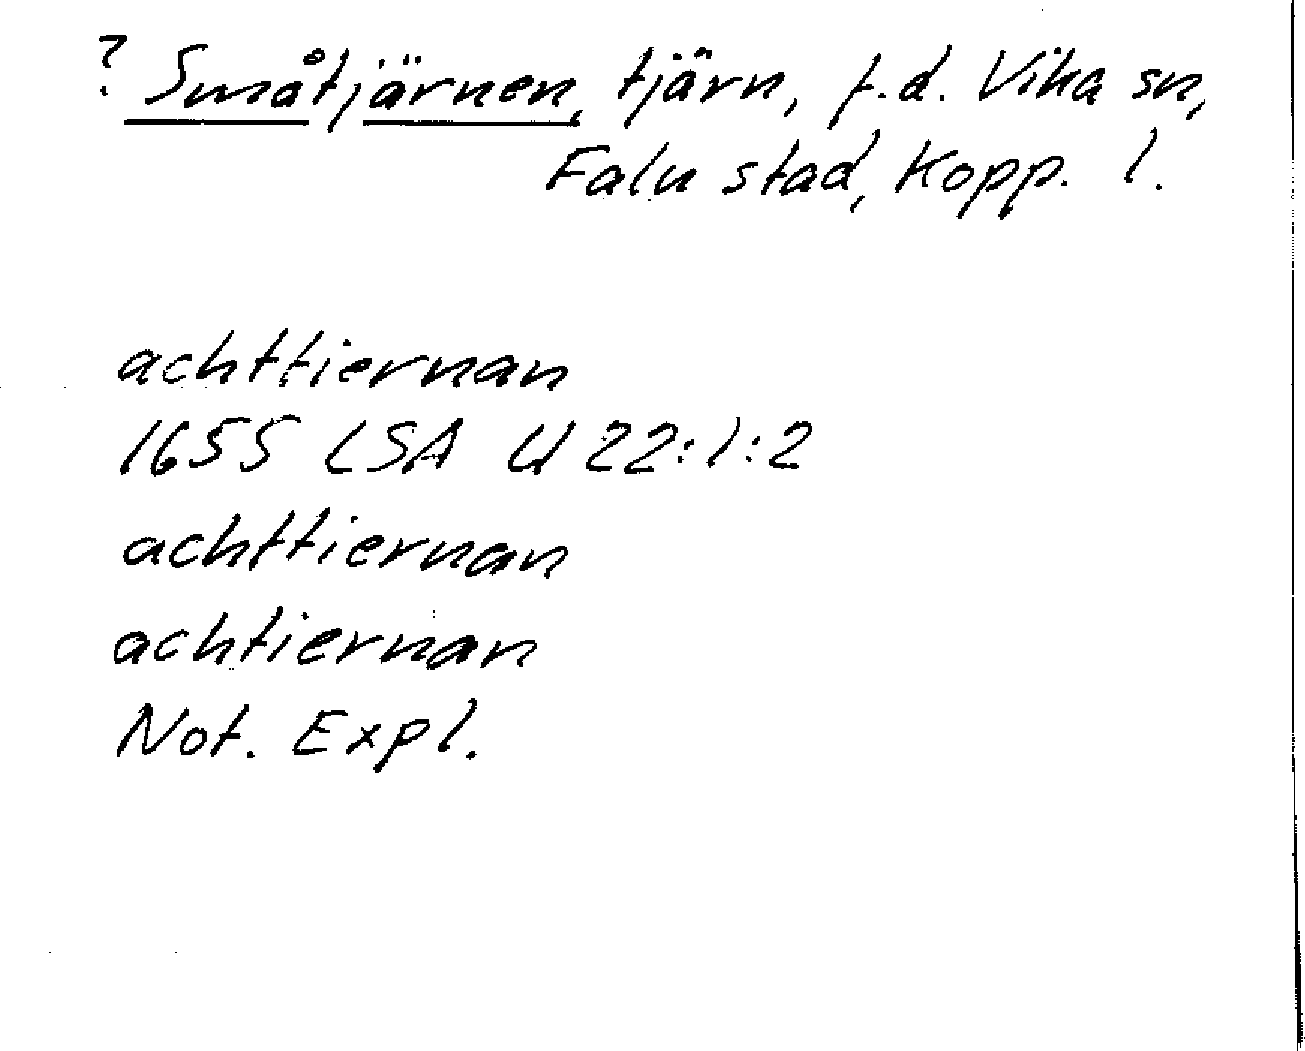 ? Småtjärnen, tjärn, f.d. Vika sn,
Falu stad, Kopp. l.
achttiernan
1655 LSA U 22:1:2
achttiernan
achtiernan
Not. Expl.